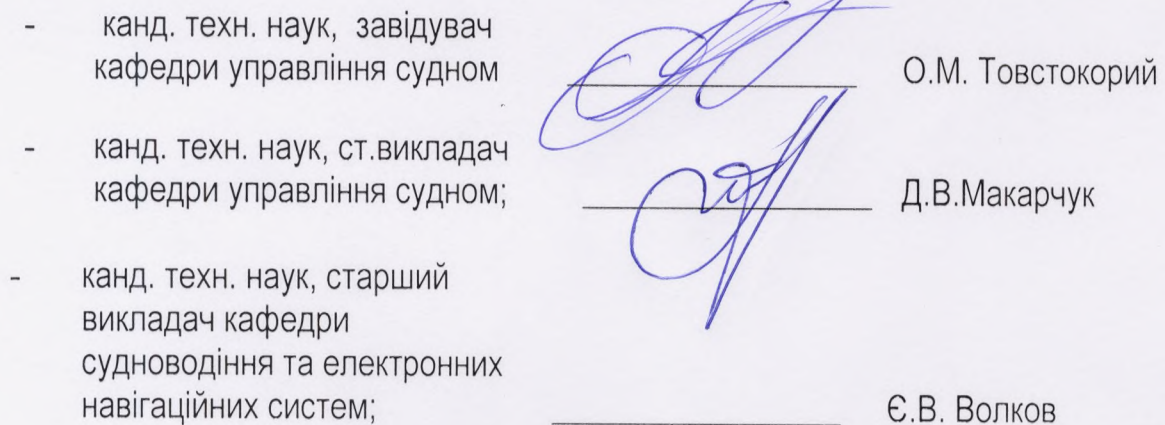 - канд. техн. наук, завідувач
кафедри управління судном О.М. Товстокорий
- канд. техн. наук, ст.викладач
кафедри управління судном; Д.В.Макарчук
- канд. техн. наук, старший
викладач кафедри
судноводіння та електронних
навігаційних систем; Є.В. Волков